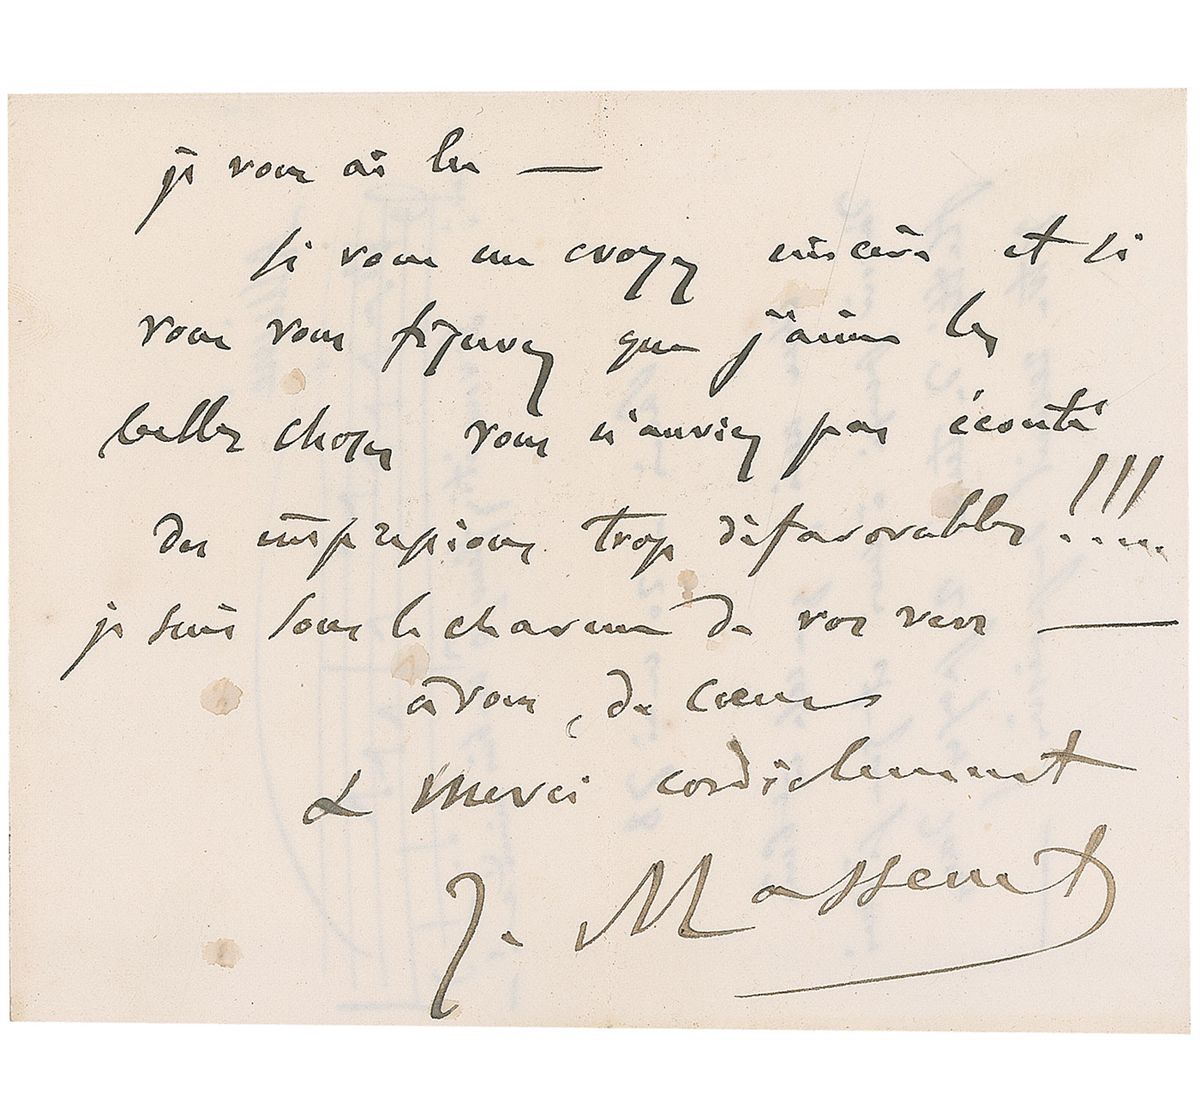 je vous ai lu —
si vous me croyez sincère et si
vous vous figurez que j'aime les
belles choses vous n'aurez pas écouté
des impressions trop défavorables !!!....
je suis sous le charme de vos vers —
à vous, de cœur
& merci cordialement
J. Massenet